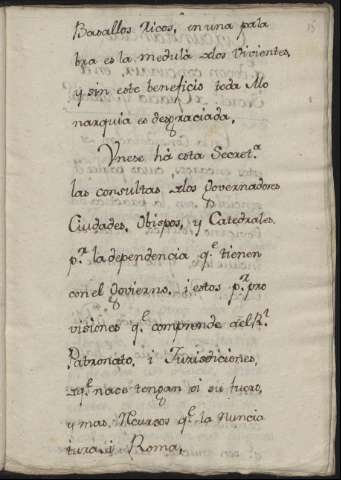 Basallos Ricos, en una pala
bra es la medula de los Vivientes,
y sin este beneficio toda Mo
narquia es desgraciada.
Vnese há esta Secret.ª
las consultas de los Governadores
Ciudades, Obispos, y Catedrales,
p.r la dependencia q.e tienen
con el govierno, i estos p.r pro
visiones q.e comprende del R.l
Patronato, i Jurisdiciones,
q.e nace tengan oi su fuero,
y mas, Recursos q.e la Nuncia
tura, y Roma,